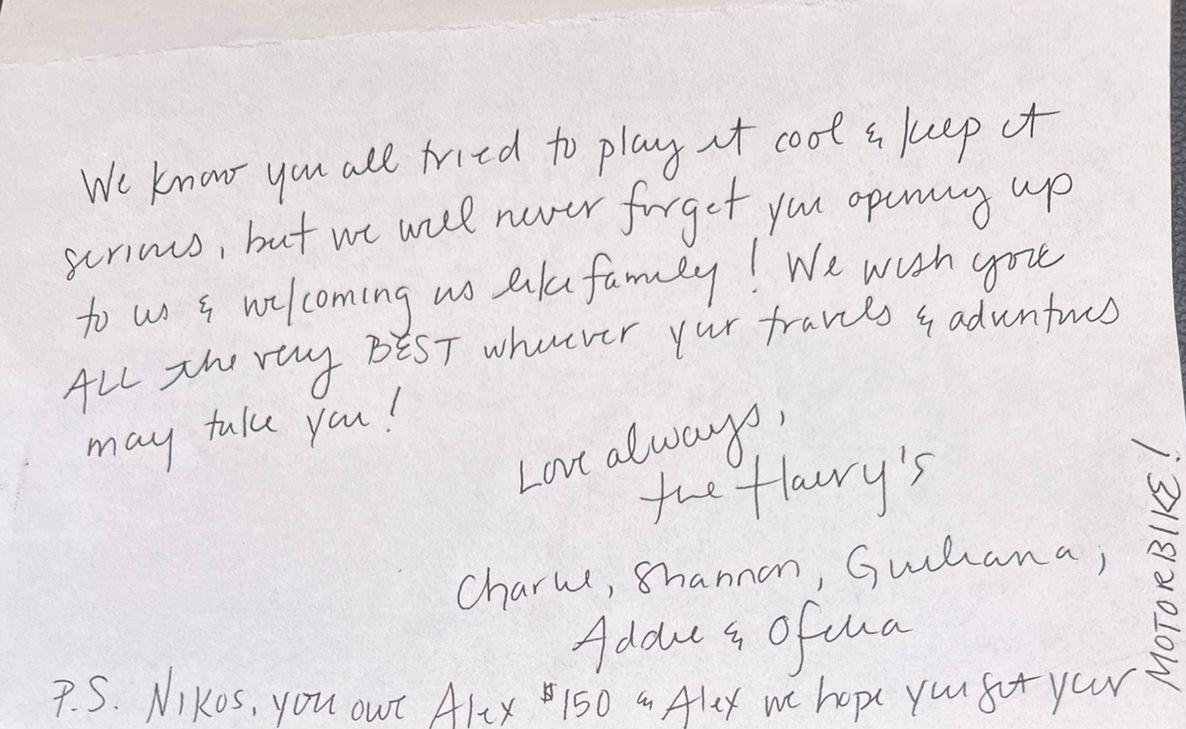 We know you all tried to play it cool & keep it
serious, but we will never forget you opening up
to us & welcoming us like family! We wish you
ALL the very BEST wherever your travels & adventures
may take you!
Love always,
the
Charlie, Shannon, Guiliana,
Addie & Ofelia
P.S. NIKOS, you owe Alex $150 & Alex we hope you get your
MOTORBIKE!